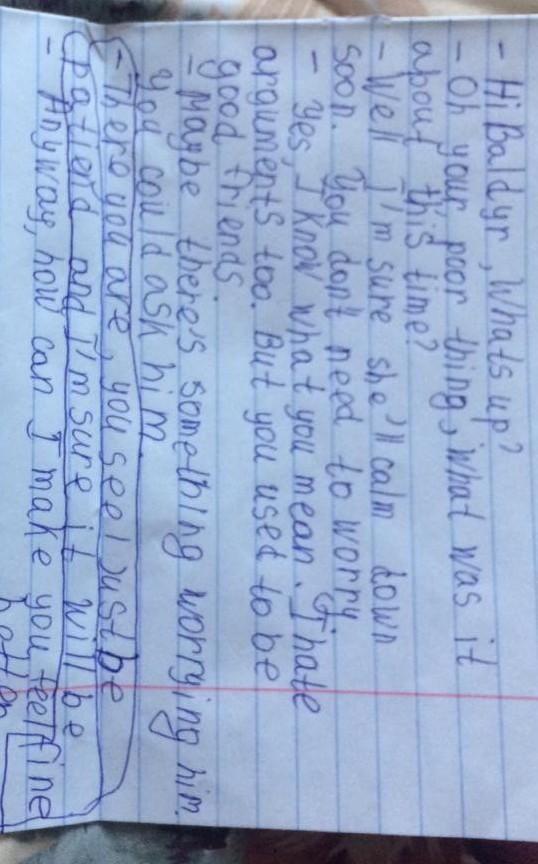 - Hi Baldyr, Whats up?
- Oh your poor thing, what was it
about this time?
- Well I'm sure she'll calm down
soon. You don't need to worry
- Yes, I know what you mean. I hate
arguments too. But you used to be
good friends.
- Maybe there's something worrying him.
you could ask him
- There you are, you see! Just be
patiend and I'm sure it will be
fine
- Anyway, how can I make you feel
better